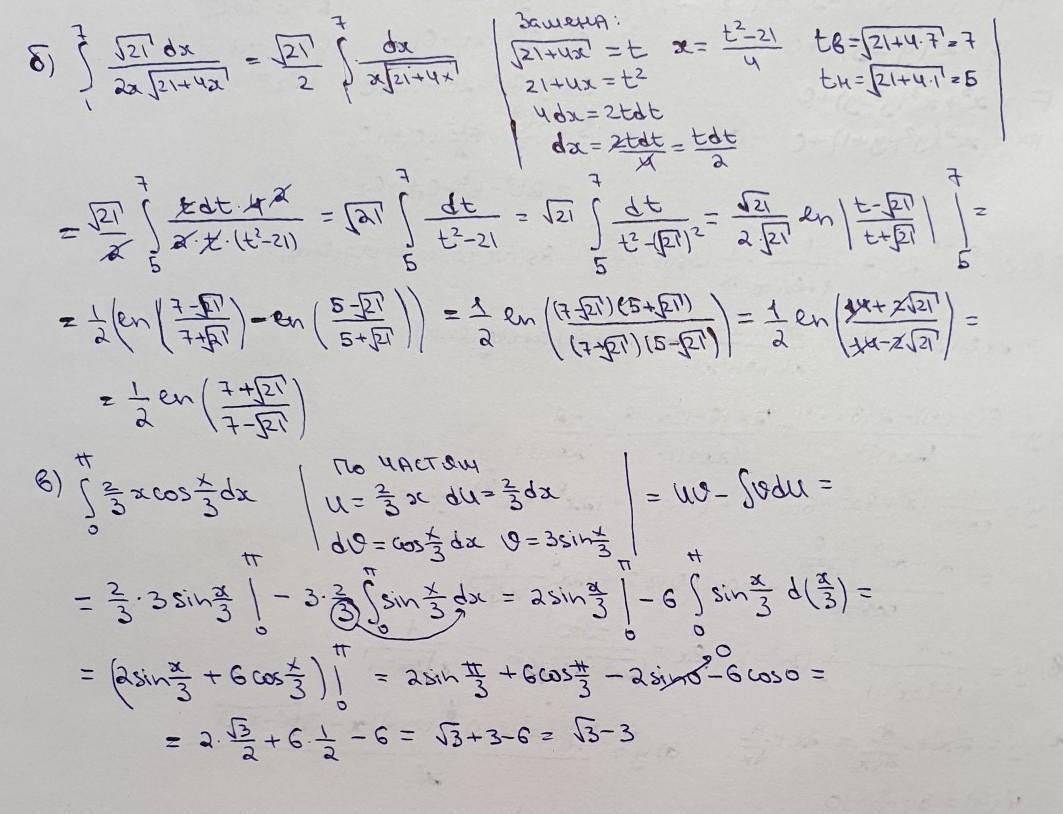 б) ∫₁⁷ √21 dx / (2x√(21+4x)) = √21/2 ∫₁⁷ dx / (x√(21+4x)) | Замена: √(21+4x) = t x = (t²-21)/4 tв = √(21+4·7) = 7
21+4x = t² tн = √(21+4·1) = 5
4dx = 2tdt
dx = 2tdt/4 = tdt/2 |
= √21/2 ∫₅⁷ tdt·4 2 / (2·t·(t²-21)) = √21 ∫₅⁷ dt/(t²-21) = √21 ∫₅⁷ dt/(t²-(√21)²) = √21/(2·√21) ln |(t-√21)/(t+√21)| |₅⁷ =
= 1/2 (ln ((7-√21)/(7+√21)) - ln ((5-√21)/(5+√21))) = 1/2 ln ((7-√21)(5+√21) / (7+√21)(5-√21)) = 1/2 ln ((14+2√21)/(14-2√21)) =
= 1/2 ln ((7+√21)/(7-√21))
в) ∫₀^π 2/3 x cos x/3 dx | по частям
u = 2/3 x du = 2/3 dx
dv = cos x/3 dx v = 3 sin x/3 | = uv - ∫vdu =
= 2/3 · 3 sin x/3 |₀^π - 3 · 2/3 ∫₀^π sin x/3 dx = 2 sin x/3 |₀^π - 6 ∫₀^π sin x/3 d(x/3) =
= (2 sin x/3 + 6 cos x/3) |₀^π = 2 sin π/3 + 6 cos π/3 - 2 sin 0 - 6 cos 0 = 0
= 2 · √3/2 + 6 · 1/2 - 6 = √3 + 3 - 6 = √3 - 3